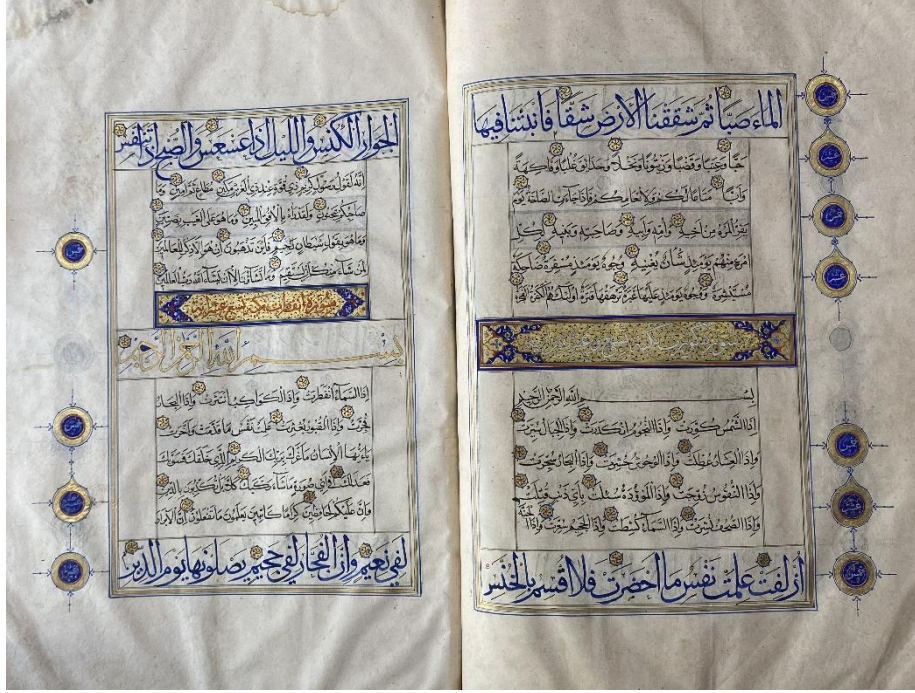 الماء صبا ثم شققنا الأرض شقا فأنبتنا فيها
حبا وعنبا وقضبا وزيتونا ونخلا وحدائق غلبا وفاكهة
وأبا متاعا لكم ولأنعامكم فإذا جاءت الصاخة يوم
يفر المرء من أخيه وأمه وأبيه وصاحبته وبنيه لكل
امرئ منهم يومئذ شأن يغنيه وجوه يومئذ مسفرة ضاحكة
مستبشرة ووجوه يومئذ عليها غبرة ترهقها قترة أولئك هم الكفرة الفجرة
بسم الله الرحمن الرحيم
إذا الشمس كورت وإذا النجوم انكدرت وإذا الجبال سيرت
وإذا العشار عطلت وإذا الوحوش حشرت وإذا البحار سجرت
وإذا النفوس زوجت وإذا الموؤدة سئلت بأي ذنب قتلت
وإذا الصحف نشرت وإذا السماء كشطت وإذا الجحيم سعرت وإذا الجنة
أزلفت علمت نفس ما أحضرت فلا أقسم بالخنس
الجوار الكنس والليل إذا عسعس والصبح إذا تنفس
إنه لقول رسول كريم ذي قوة عند ذي العرش مكين مطاع ثم أمين وما
صاحبكم بمجنون ولقد رآه بالأفق المبين وما هو على الغيب بضنين
وما هو بقول شيطان رجيم فأين تذهبون إن هو إلا ذكر للعالمين
لمن شاء منكم أن يستقيم وما تشاؤن إلا أن يشاء الله رب العالمين
بسم الله الرحمن الرحيم
إذا السماء انفطرت وإذا الكواكب انتثرت وإذا البحار
فجرت وإذا القبور بعثرت علمت نفس ما قدمت وأخرت
يا أيها الإنسان ما غرك بربك الكريم الذي خلقك فسواك
فعدلك في أي صورة ما شاء ركبك كلا بل تكذبون بالدين
وإن عليكم لحافظين كراما كاتبين يعلمون ما تفعلون إن الأبرار
لفي نعيم وإن الفجار لفي جحيم يصلونها يوم الدين